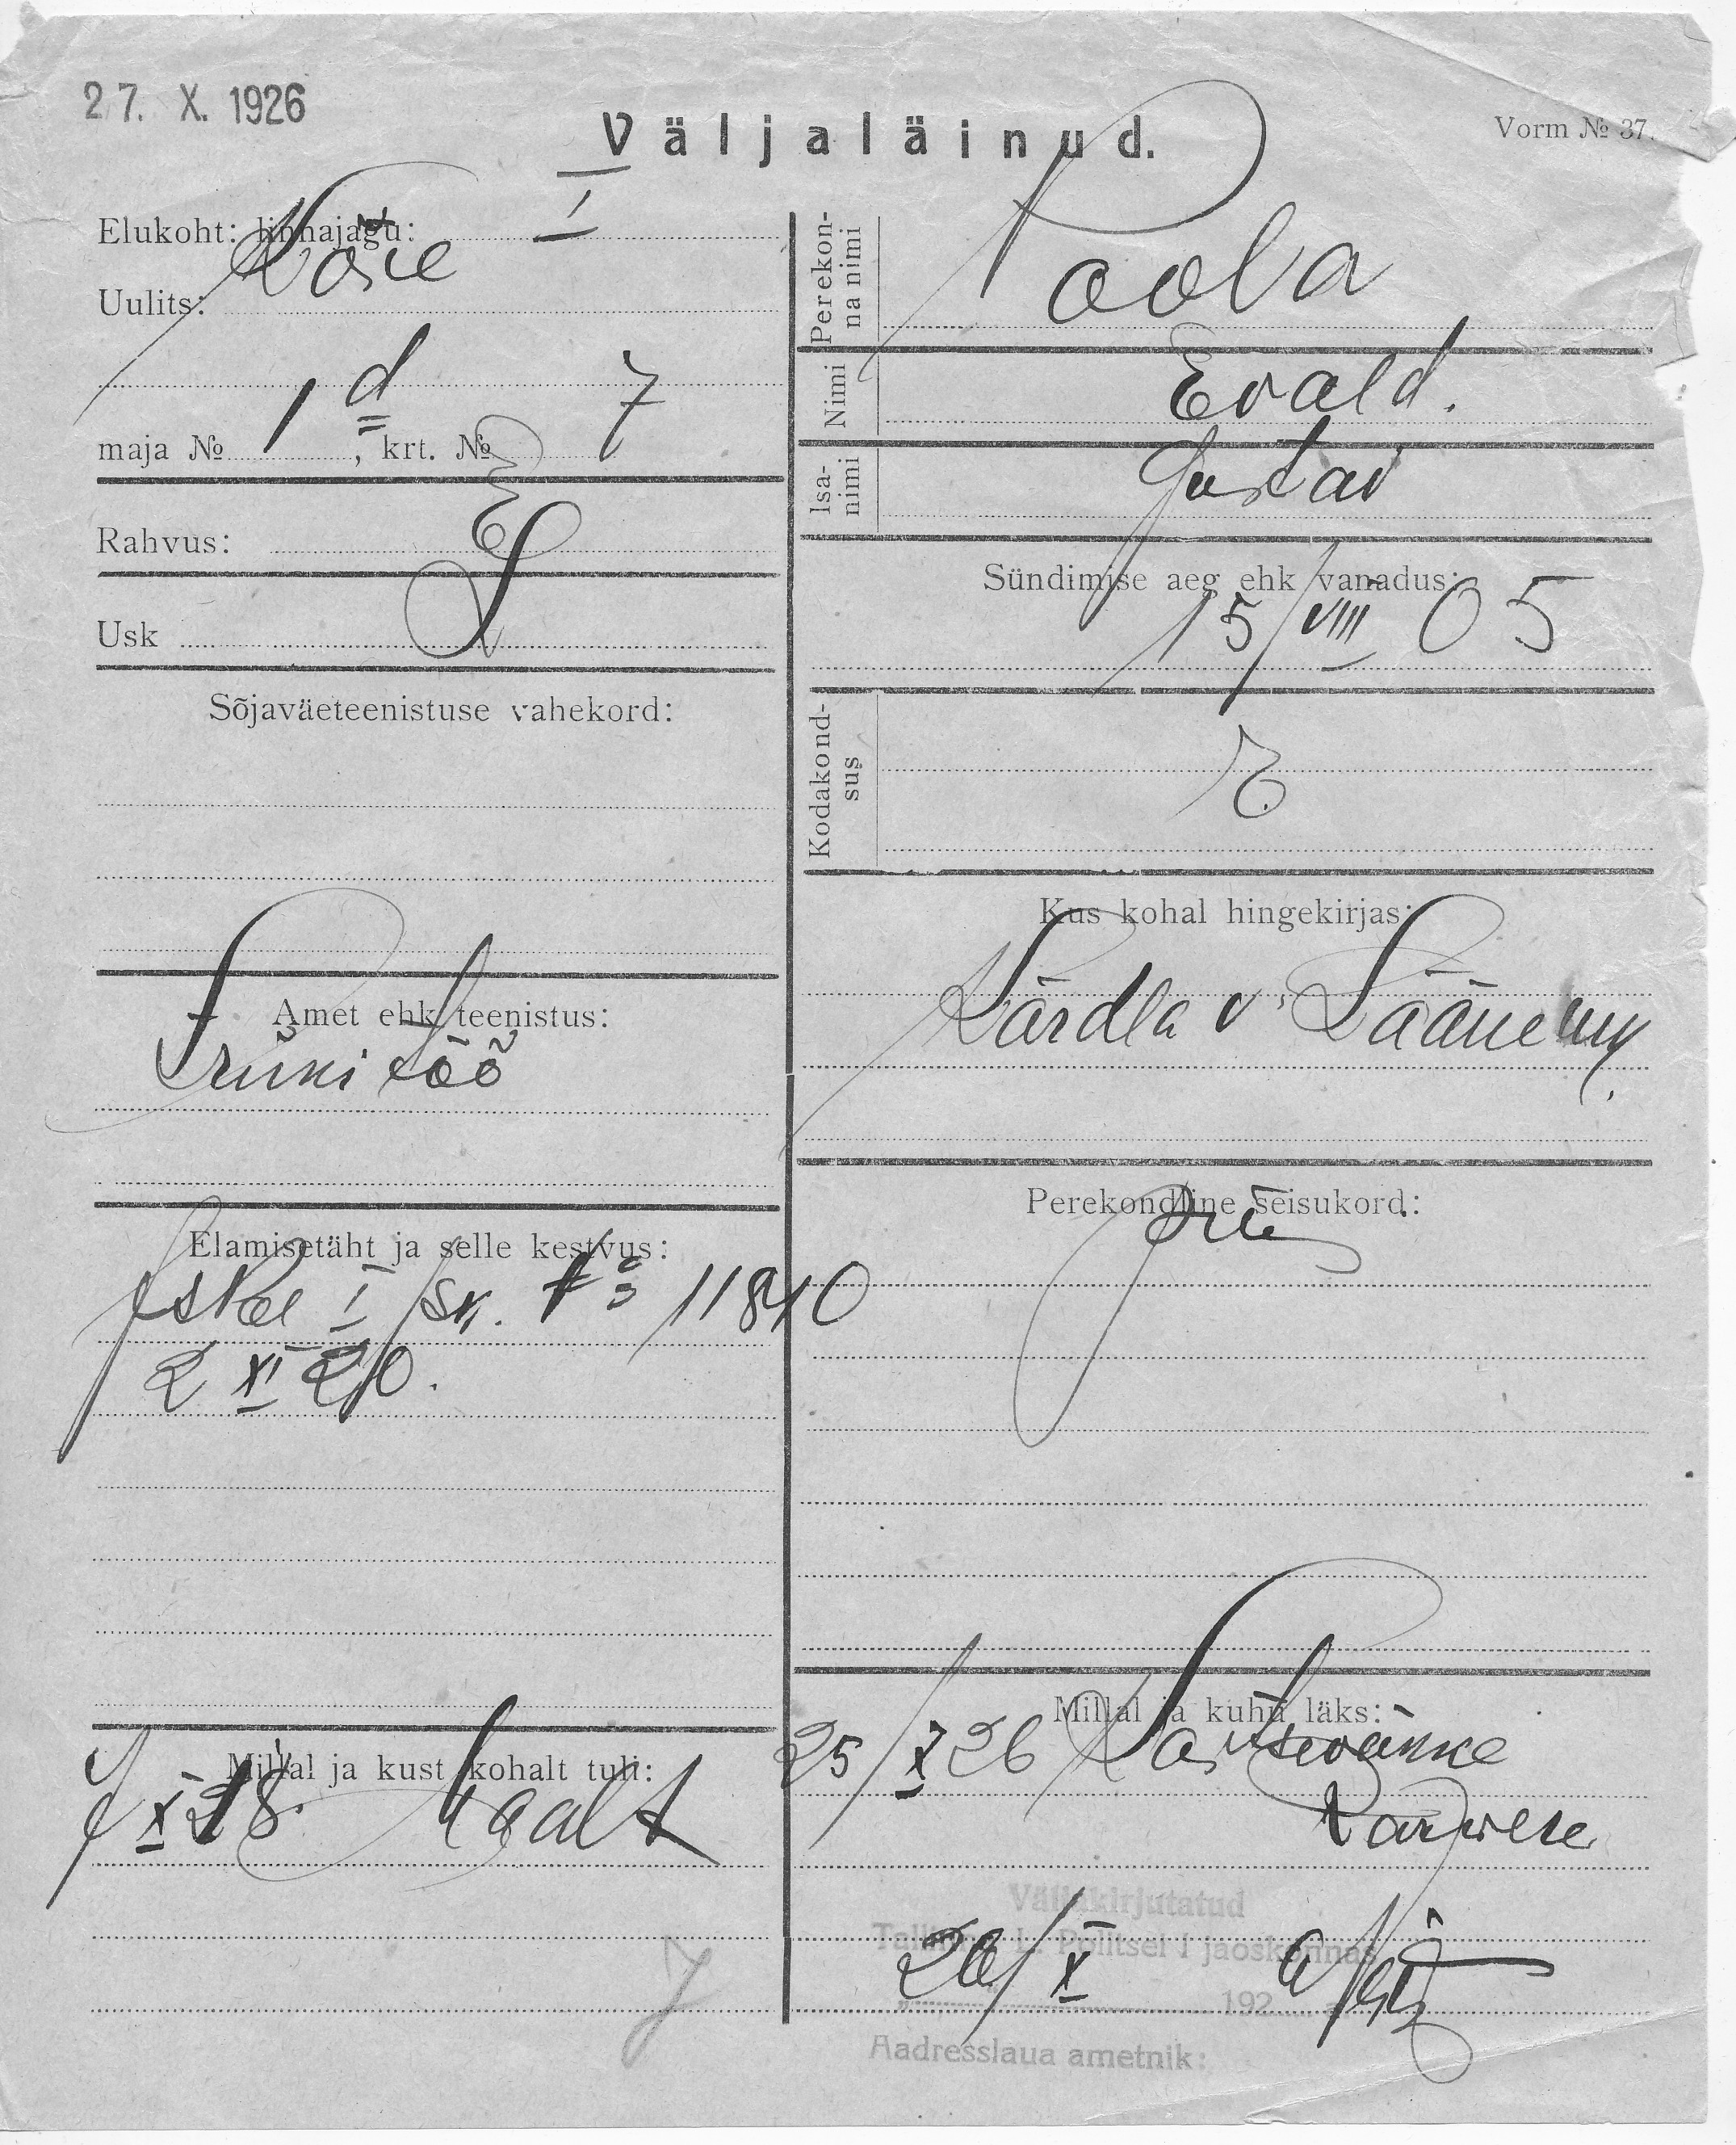 27. X. 1926
Väljaläinud.
Vorm № 37.
Elukoht: linnajagu: I
Uulits: Kose
maja № 1 d, krt. № 7
Rahvus: E
Usk L
Sõjaväeteenistuse vahekord:
Amet ehk teenistus:
Trüki töö
Elamisetäht ja selle kestvus:
I jsk. № 11810
2 XI 20.
Millal ja kust kohalt tuli:
X 18. maalt
Perekonna nimi Poola
Nimi Evald.
Isanimi Gustav
Sündimise aeg ehk vanadus:
15/VIII 05
Kodakondsus E.
Kus kohal hingekirjas:
Kärdla v. Läänem.
Perekondline seisukord:
Millal ja kuhu läks:
25/X 26 Kaitseväkke
Väljakirjutatud
Tallinna L. Politsei I jaoskonnas
26/X 192
Aadresslaua ametnik: